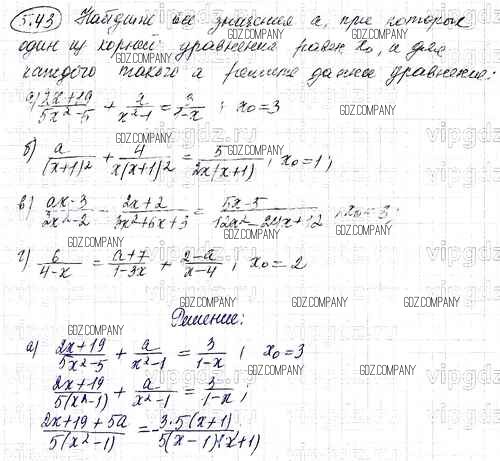 5.43 Найдите все значения a, при которых
один из корней уравнения равен x₀, и для
каждого такого a решите данное уравнение:
а) (2x+19)/(5x²-5) + a/(x²-1) = 3/(1-x) ; x₀=3
GDZ.COMPANY
б) a/(x+1)² + 4/(x(x+1)²) = 5/(2x(x+1)) ; x₀=1;
в) (ax-3)/(3x²-2) (2x+2)/(3x²+6x+3) = (5x-5)/(12x²-24x+12)
г) 6/(4-x) = (a+7)/(1-3x) + (2-a)/(x-4) ; x₀=2
GDZ.COMPANY
Решение:
а) (2x+19)/(5x²-5) + a/(x²-1) = 3/(1-x) ; x₀=3
(2x+19)/(5(x²-1)) + a/(x²-1) = 3/(1-x) ;
(2x+19+5a)/(5(x²-1)) = -3·5(x+1)/(5(x-1)(x+1))
vipgdz.com